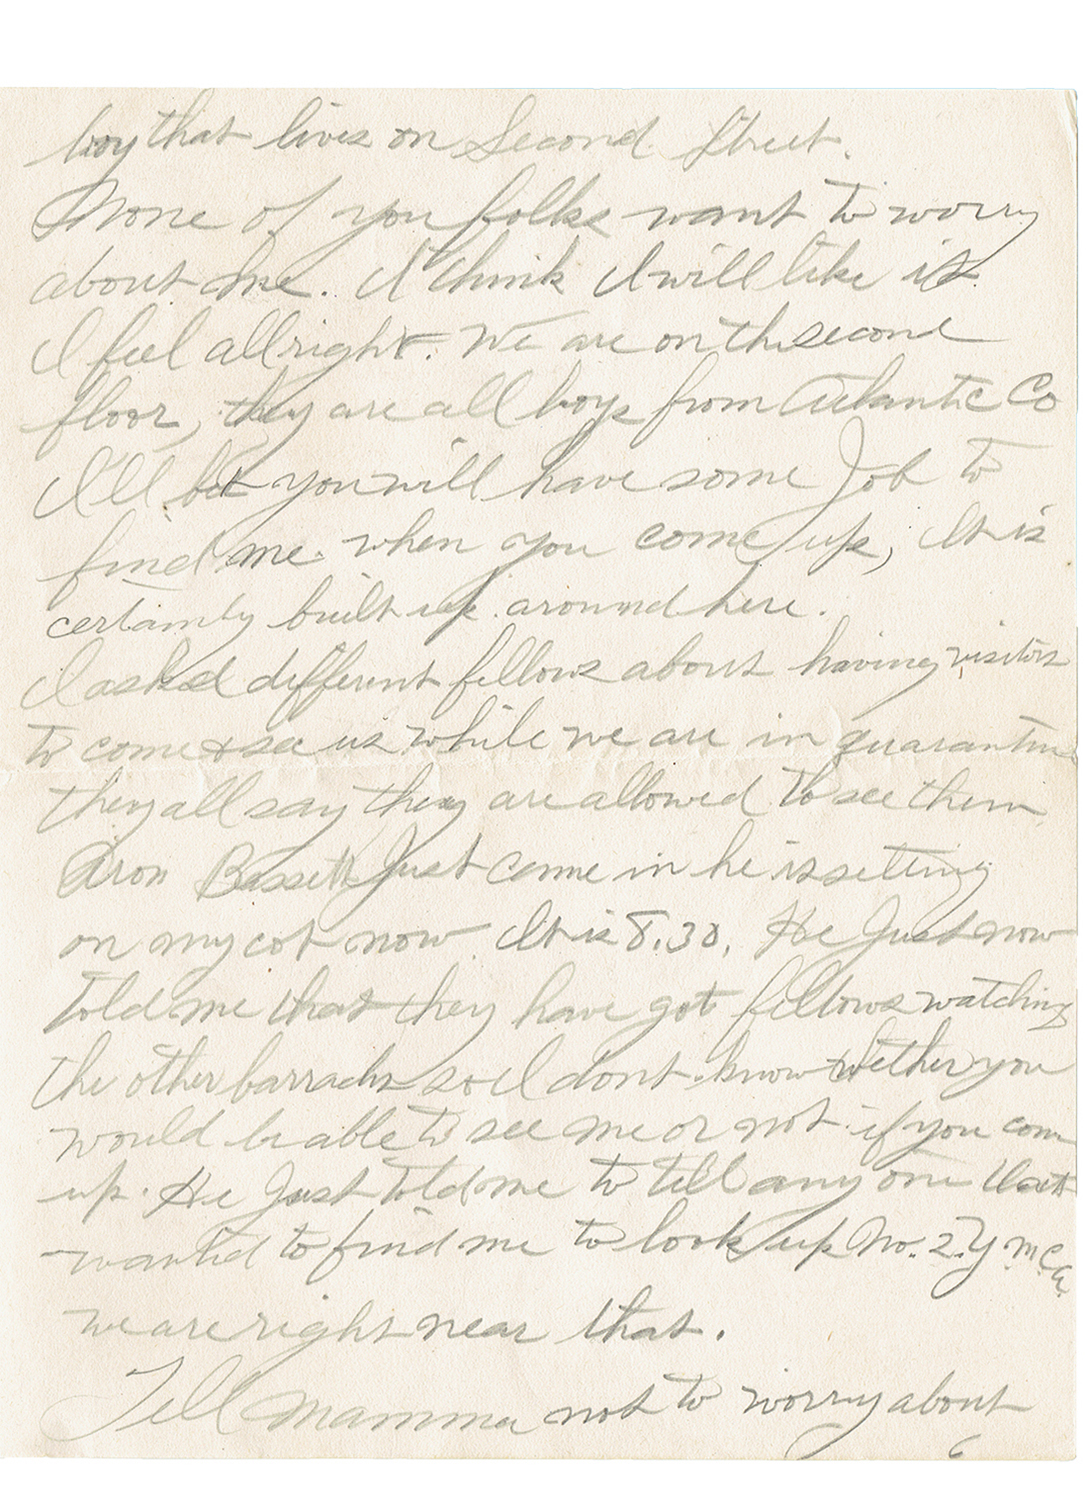 boy that lives on Second Street.
None of you folks want to worry
about me. I think I will like it
I feel allright. We are on the second
floor, they are all boys from Atlantic Co
I'll bet you will have some Job to
find me when you come up, It is
certainly built up around here.
I asked different fellows about having visitors
to come & see us while we are in quarantine
they all say they are allowed to see them
Aron Bassett Just come in he is setting
on my cot now It is 8.30, He Just now
told me that they have got fellows watching
the other barracks so I dont know whether you
would be able to see me or not if you come
up. He Just told me to tell any one that
wanted to find me to look up No. 2. Y.M.C.A.
we are right near that.
Tell Mamma not to worry about
6